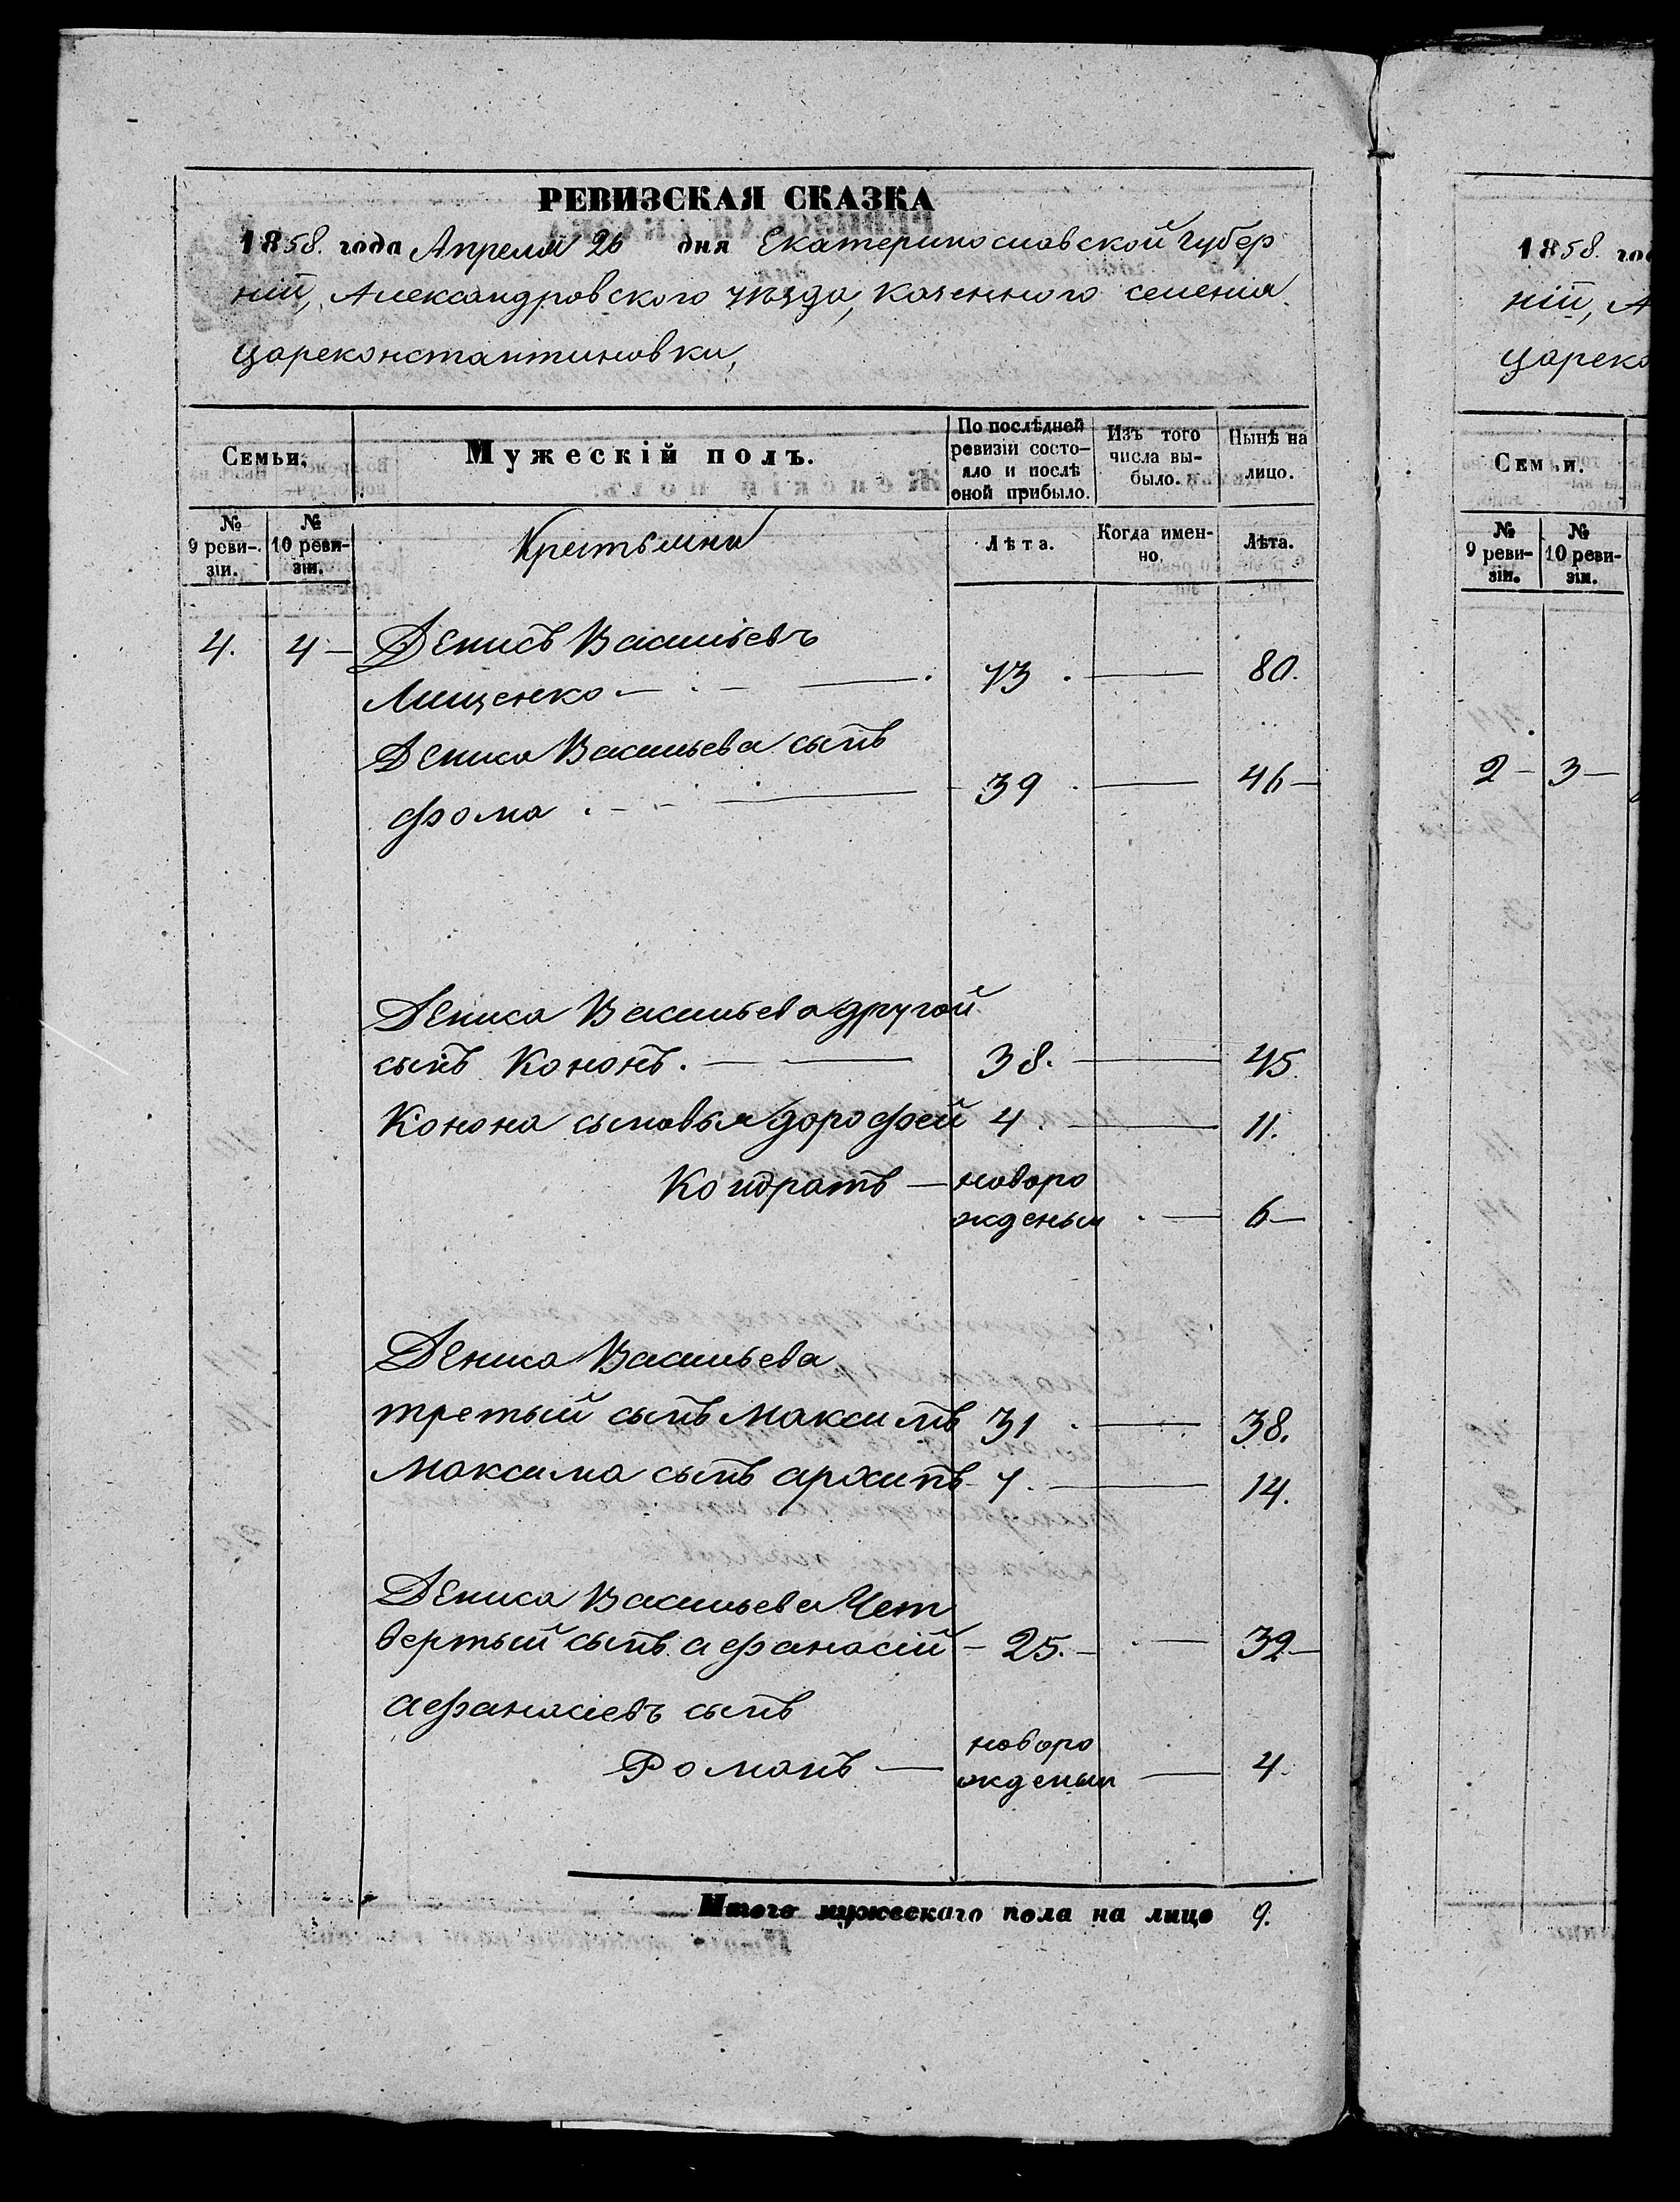 РЕВИЗСКАЯ СКАЗКА
1858. года Апреля 26 дня Екатеринославской Губер
нiи, Александровского уѣзда, Казенного селенiя
Цареконстантиновки,
Семьи.
Мужескiй полъ.
По послѣдней ревизiи состояло и послѣ оной прибыло.
Изъ того числа выбыло.
Нынѣ на лицо.
№ 9 ревизiи.
№ 10 ревизiи.
Крестьяни
Лѣта.
Когда именно.
Лѣта.
4. 4 — Денисъ Васильевъ
Лищенко — 73 — 80.
Дениса Васильева сынъ
Фома — 39 — 46 —
Дениса Васильева другой
сынъ Кононъ. — 38. — 45
Конона сыновья Дорофей 4. — 11.
Кондратъ — новоро
жденый — 6 —
Дениса Васильева
третый сынъ Максимъ 31 — 38.
Максима сынъ архипъ 7. — 14.
Дениса Васильева Чет
вертый сынъ афанасiй — 25. — 32 —
афанасiевъ сынъ
Романъ — новоро
жденый — 4.
Итого мужескаго пола на лицо 9.
1858. го
нiи, А
Цареко
Семьи.
№ 9 ревизiи.
№ 10 ревизiи.
2 — 3 —